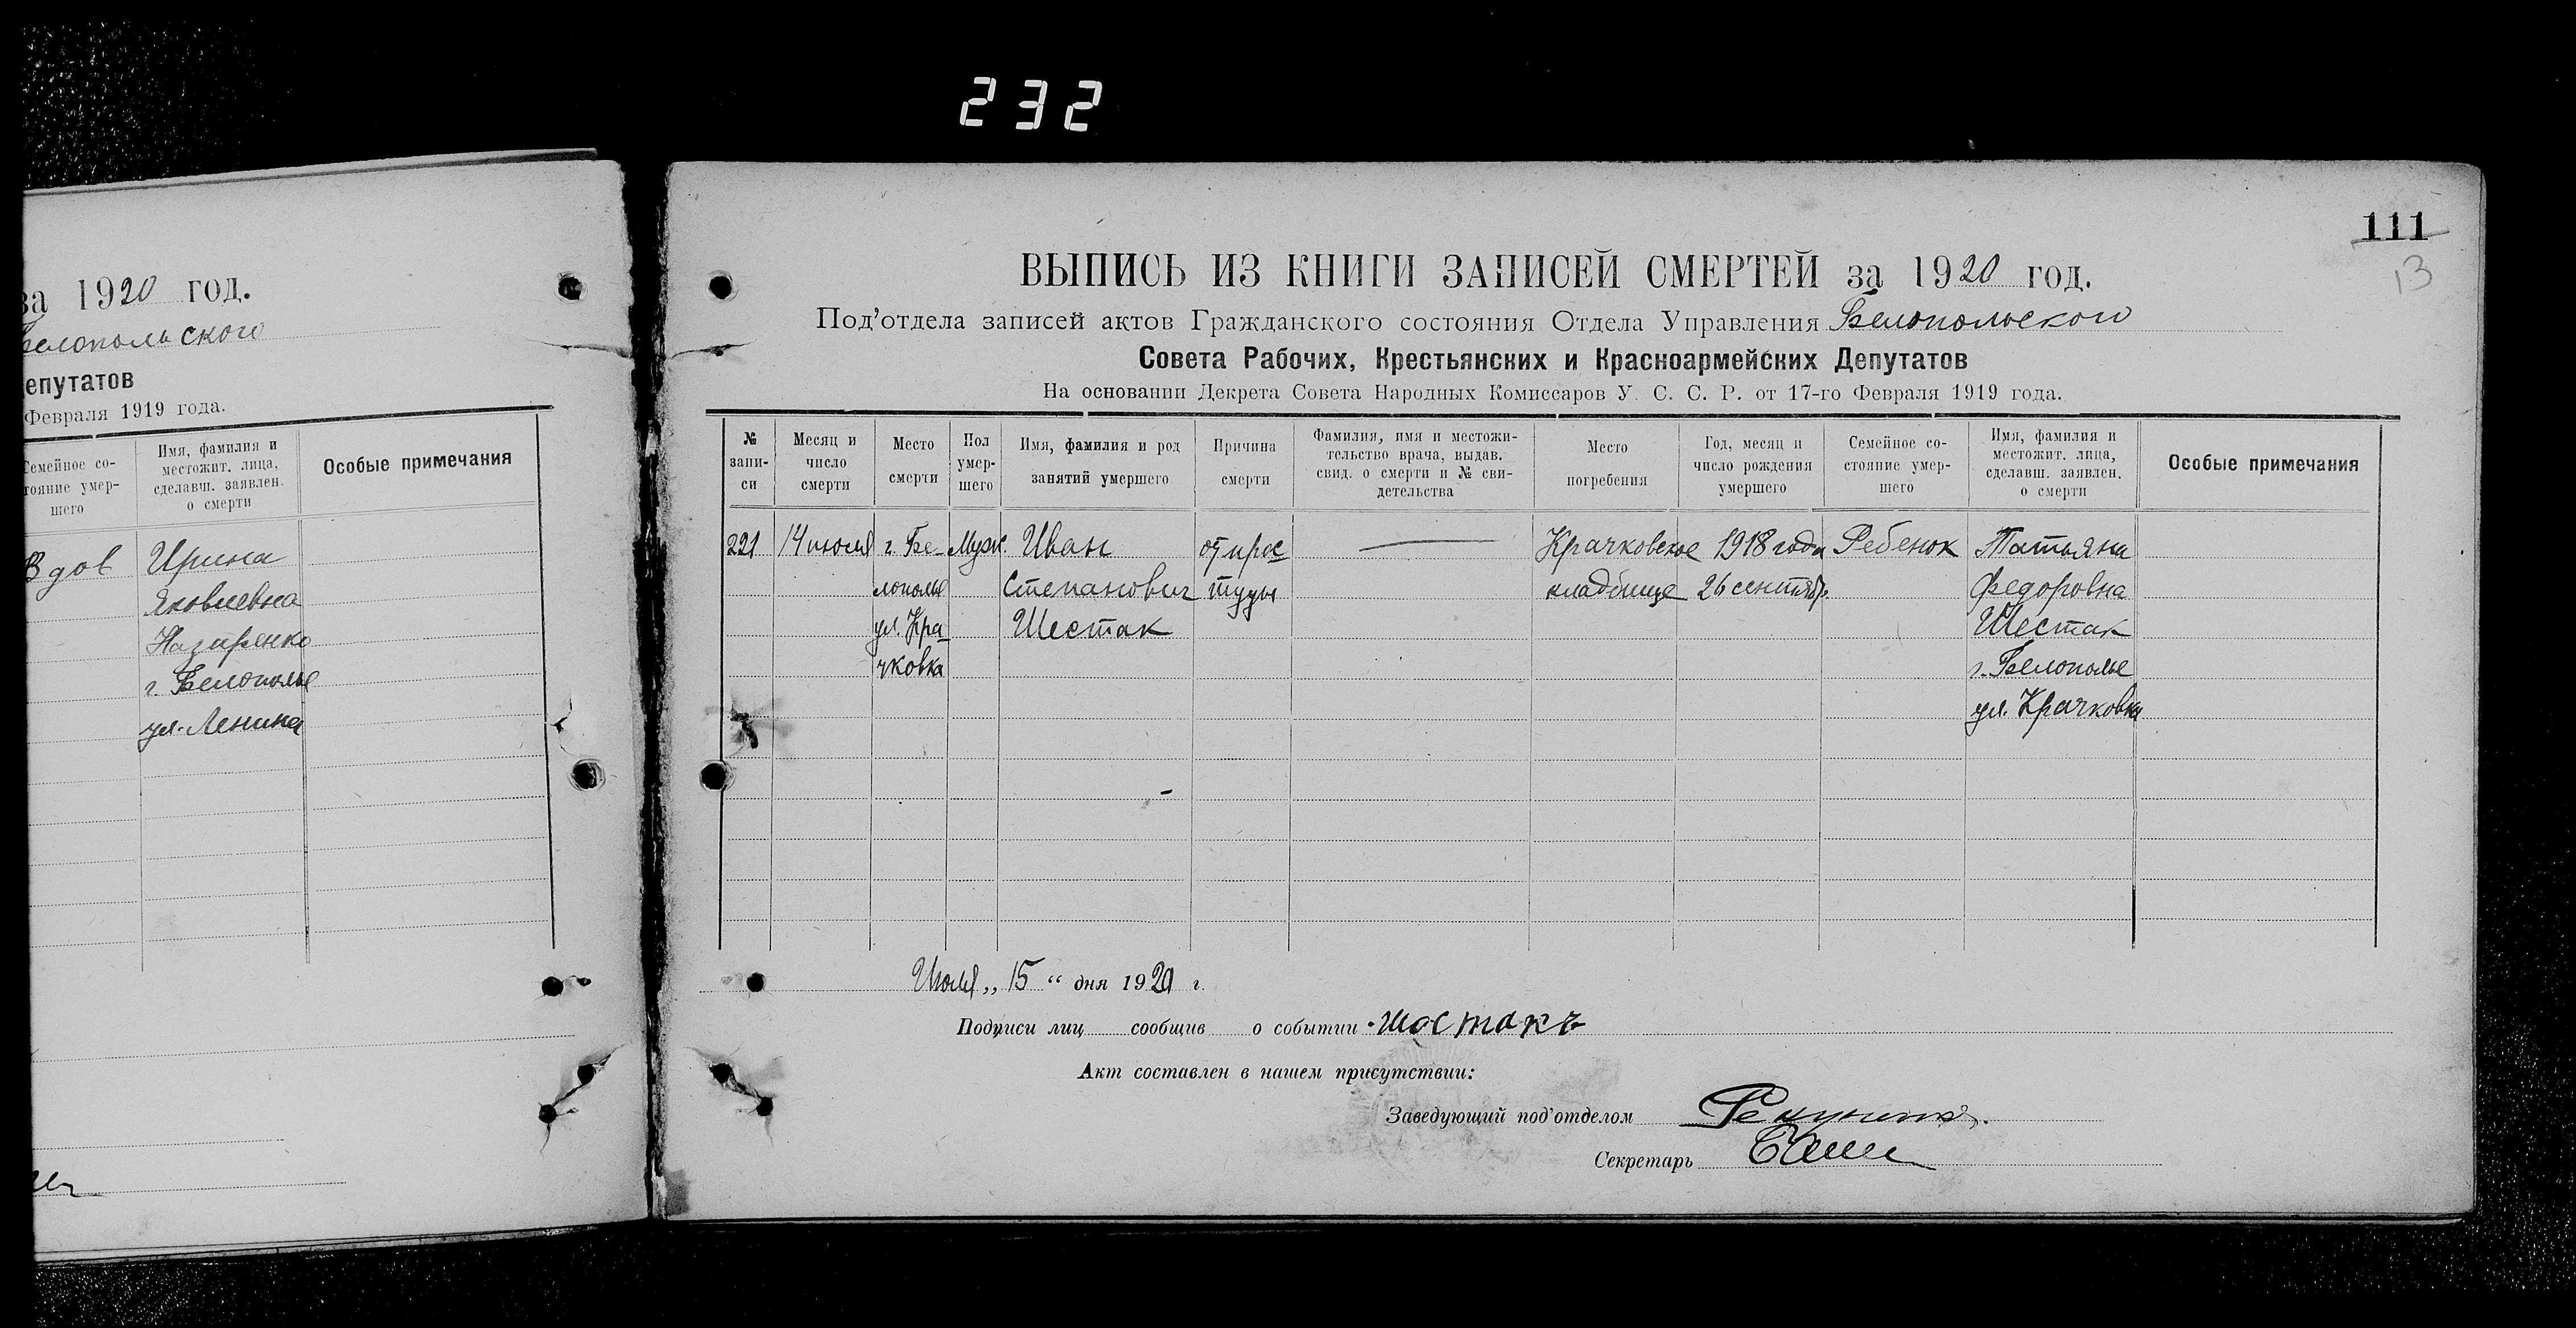 232
за 1920 год.
Белопольского
епутатов
Февраля 1919 года.
Семейное со-
тояние умер-
шего
Имя, фамилия и
местожит. лица,
сделавш. заявлен.
о смерти
Особые примечания
Вдов
Ирина
Яковлевна
Назаренко
г. Белополье
ул. Ленина
111
13
ВЫПИСЬ ИЗ КНИГИ ЗАПИСЕЙ СМЕРТЕЙ за 1920 год.
Под'отдела записей актов Гражданского состояния Отдела Управления Белопольского
Совета Рабочих, Крестьянских и Красноармейских Депутатов
На основании Декрета Совета Народных Комиссаров У. С. С. Р. от 17-го Февраля 1919 года.
№
запи-
си
Месяц и
число
смерти
Место
смерти
Пол
умер-
шего
Имя, фамилия и род
занятий умершего
Причина
смерти
Фамилия, имя и местожи-
тельство врача, выдав.
свид. о смерти и № сви-
детельства
Место
погребения
Год, месяц и
число рождения
умершего
Семейное со-
стояние умер-
шего
Имя, фамилия и
местожит. лица,
сделавш. заявлен.
о смерти
Особые примечания
221
14 июля
г. Бе-
лополье
ул. Кра-
чковка
Муж.
Иван
Степанович
Шестак
от прос-
туды
Крачковское
кладбище
1918 года
26 сентябр.
Ребенок
Татьяна
Федоровна
Шестак
г. Белополье
ул. Крачковка
Июля „ 15 “ дня 1920 г.
Подписи лиц сообщив о событии Шостакъ
Акт составлен в нашем присутствии:
Заведующий под'отделом
Секретарь